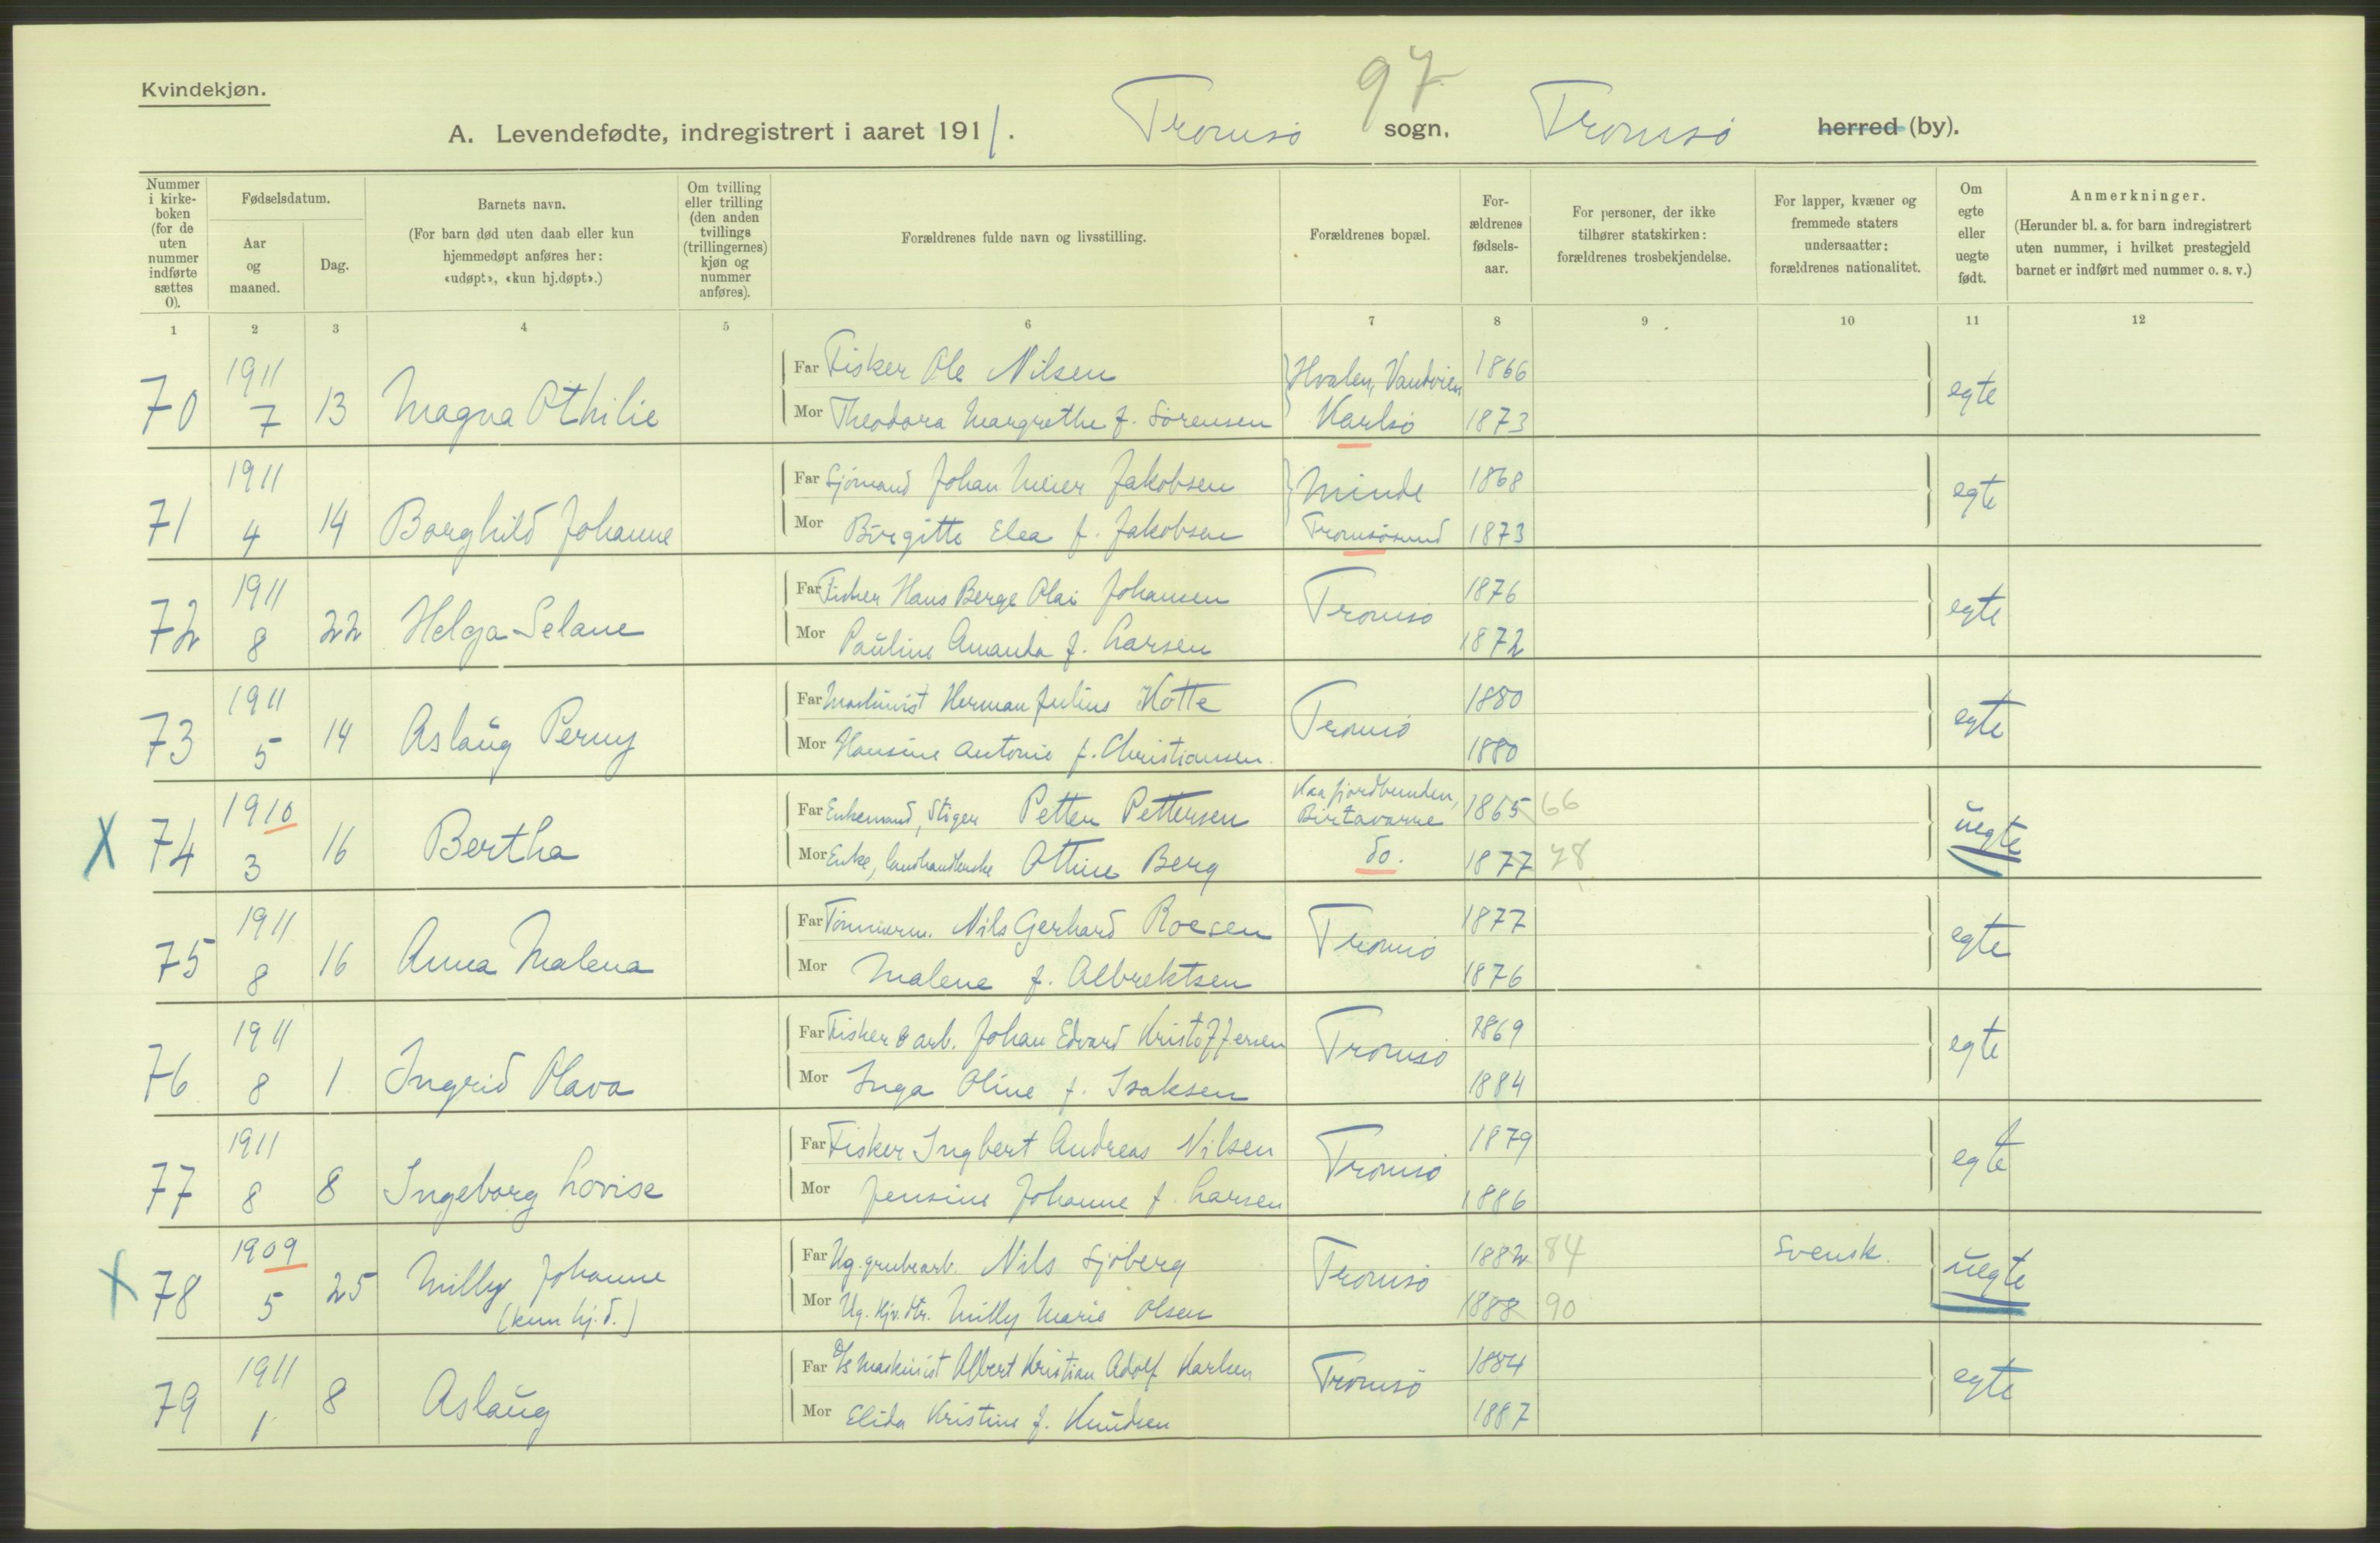 97
Kvindekjøn.
A. Levendefødte, indregistrert i aaret 1911. Tromsø sogn, Tromsø herred (by).
Nummer i kirkeboken (for de uten nummer indførte sættes 0).
Fødselsdatum.
Aar og maaned.
Dag.
Barnets navn.
(For barn død uten daab eller kun hjemmedøpt anføres her: «udøpt», «kun hj.døpt».)
Om tvilling eller trilling (den anden tvillings (trillingernes) kjøn og nummer anføres).
Forældrenes fulde navn og livsstilling.
Forældrenes bopæl.
Forældrenes fødselsaar.
For personer, der ikke tilhører statskirken: forældrenes trosbekjendelse.
For lapper, kvæner og fremmede staters undersaatter: forældrenes nationalitet.
Om egte eller uegte født.
Anmerkninger.
(Herunder bl. a. for barn indregistrert uten nummer, i hvilket prestegjeld barnet er indført med nummer o. s. v.)
1 2 3 4 5 6 7 8 9 10 11 12
70 1911 7 13 Magna Othilie Far Fisker Ole Nilsen Hvalen, Vandvien 1866 egte
Mor Theodora Margrethe f. Sørensen Karlsø 1873
71 1911 4 14 Borghild Johanne Far Sjømand Johan Meier Jakobsen Minde 1868 egte
Mor Birgitte Elea f. Jakobsen Tromsøsund 1873
72 1911 8 22 Helga Selane Far Fisker Hans Berge Olai Johansen Tromsø 1876 egte
Mor Pauline Amanda f. Larsen 1872
73 1911 5 14 Aslaug Perny Far Maskinist Herman Julius Kotte Tromsø 1880 egte
Mor Hansine Antonie f. Christiansen 1880
X 74 1910 3 16 Bertha Far Enkemand, Stiger Petter Pettersen Kaafjordbunden, Birtavarre 1865 66 uegte
Mor Enke, landhandlerske Othine Berg do. 1877 78
75 1911 8 16 Anna Malena Far Tømmerm. Nils Gerhard Roesen Tromsø 1877 egte
Mor Malene f. Albrektsen 1876
76 1911 8 1 Ingrid Olava Far Fisker & arb. Johan Edvard Kristoffersen Tromsø 1869 egte
Mor Inga Oline f. Isaksen 1884
77 1911 8 8 Ingeborg Lovise Far Fisker Ingbert Andreas Nilsen Tromsø 1879 egte
Mor Jensine Johanne f. Larsen 1886
X 78 1909 5 25 Milly Johanne Far Ug. grubearb. Nils Sjøberg Tromsø 1882 84 Svensk. uegte
(kun hj. d.) Mor Ug. Hjv. dtr. Milly Marie Olsen 1888 90
79 1911 1 8 Aslaug Far D/s Maskinist Albert Kristian Adolf Karlsen Tromsø 1884 egte
Mor Elida Kristine f. Knudsen 1887